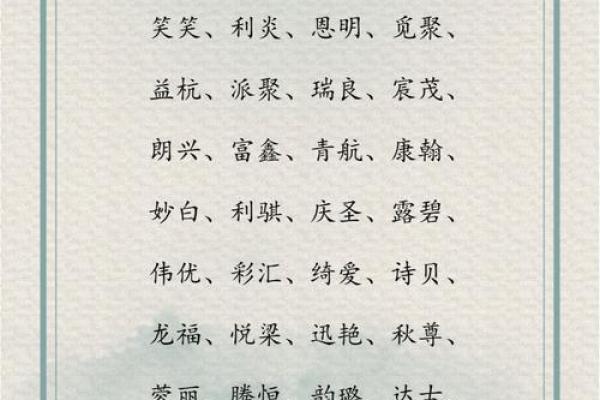 笑笑、利炎、恩明、觅聚、
益杭、派聚、瑞良、宸茂、
朗兴、富鑫、青航、康翰、
妙白、利骐、庆圣、露碧、
伟优、彩汇、绮爱、诗贝、
龙福、悦梁、迅艳、秋尊、
蓉丽、腾恒、韵璐、达士、